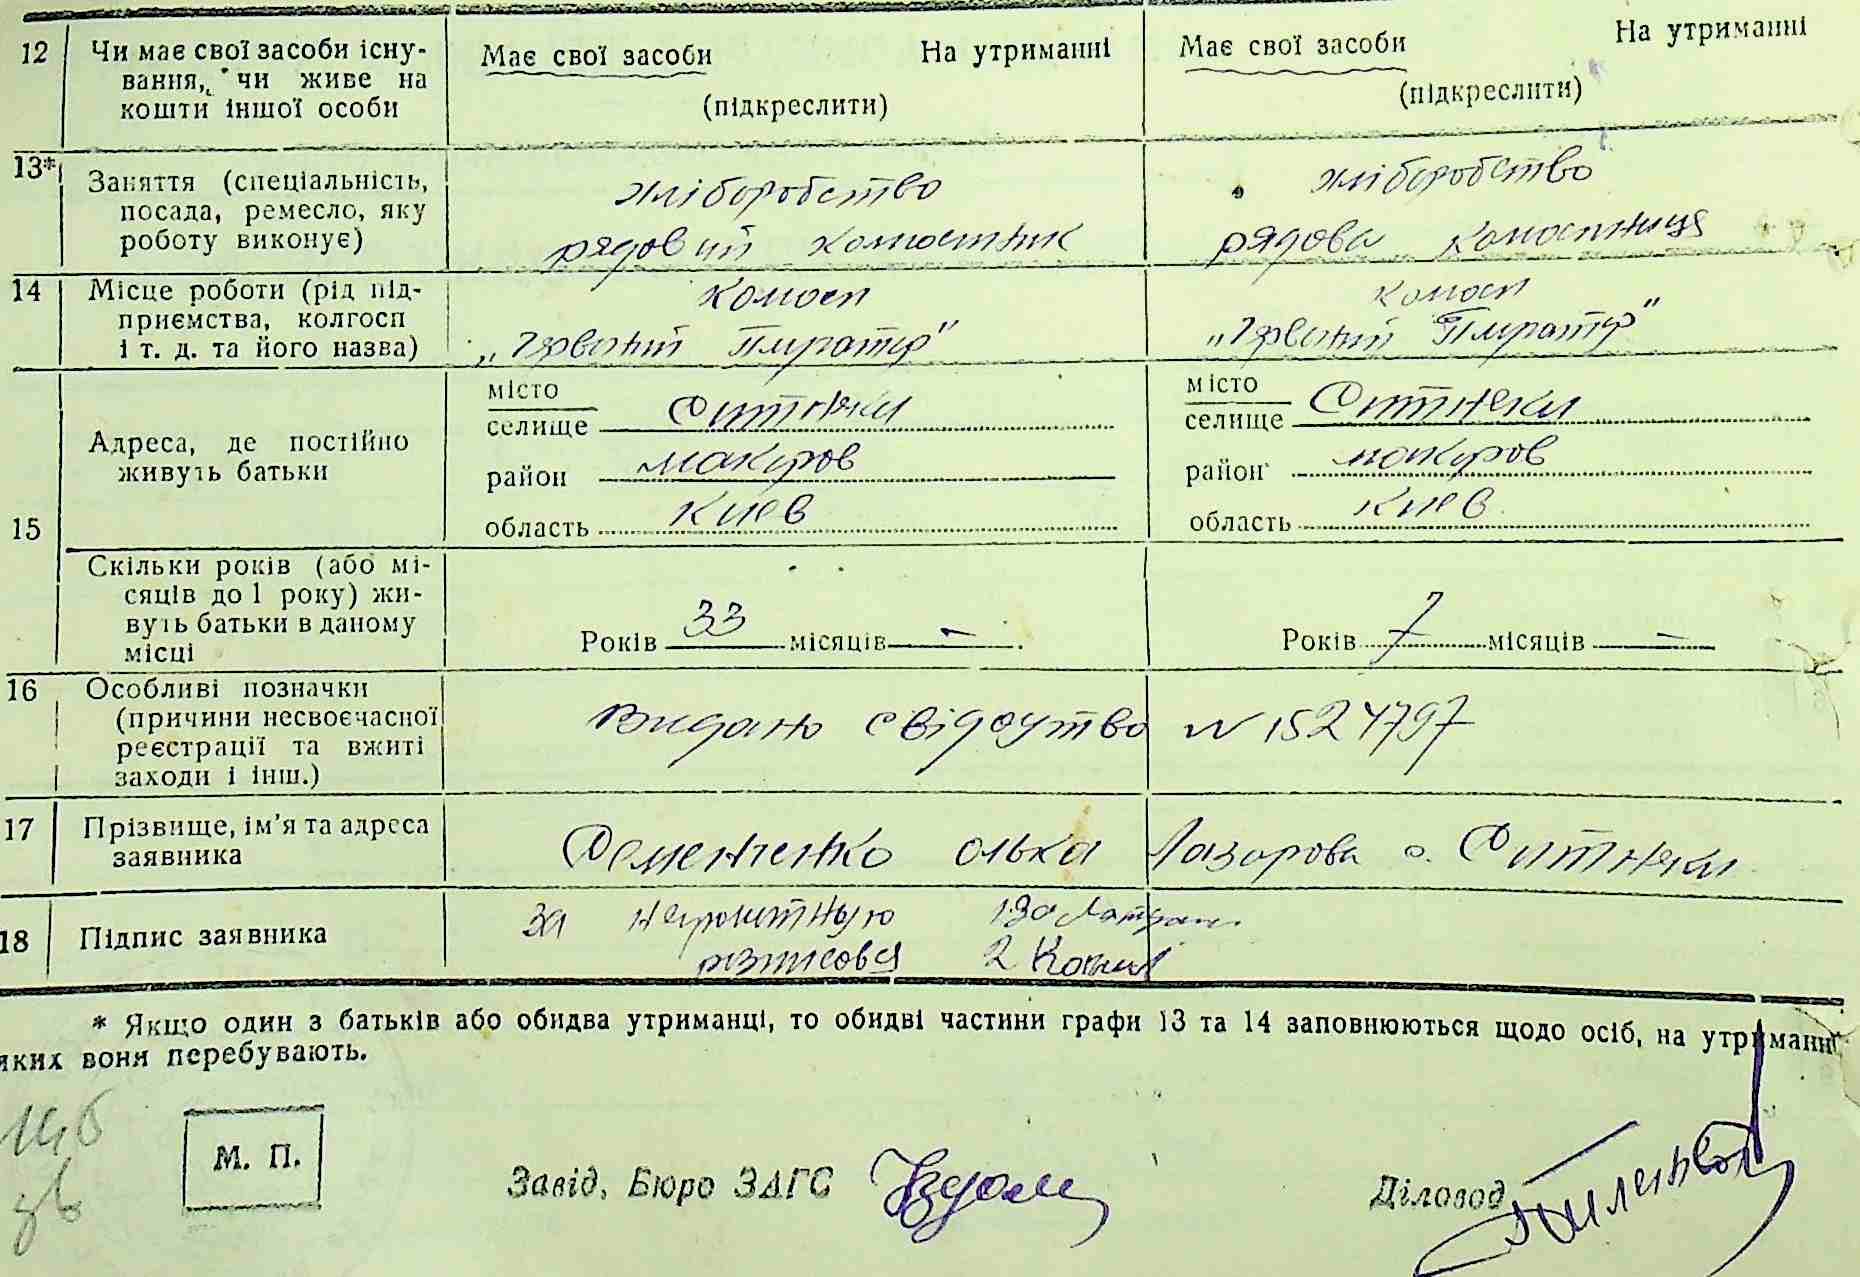 12 Чи має свої засоби існу-
вання, чи живе на
кошти іншої особи
Має свої засоби На утриманні
(підкреслити)
Має свої засоби На утриманні
(підкреслити)
13* Заняття (спеціальність,
посада, ремесло, яку
роботу виконує)
хліборобство
рядовий
хліборобство
рядова
14 Місце роботи (рід під-
приємства, колгосп
і т. д. та його назва)
15 Адреса, де постійно
живуть батьки
місто
селище Ситняки
район Макаров
область Киев
місто
селище Ситняки
район Макаров
область Киев
Скільки років (або мі-
сяців до 1 року) жи-
вуть батьки в даному
місці
Років 33 місяців –
Років 7 місяців –
16 Особливі позначки
(причини несвоєчасної
реєстрації та вжиті
заходи і інш.)
Видано свідоцтво N 1524797
17 Прізвище, ім'я та адреса
заявника
Семененко Лазарова с. Ситняки
18 Підпис заявника
за
розписовся
* Якщо один з батьків або обидва утриманці, то обидві частини графи 13 та 14 заповнюються щодо осіб, на утриманні
яких вони перебувають.
М. П.
Завід. Бюро ЗАГС
Діловод